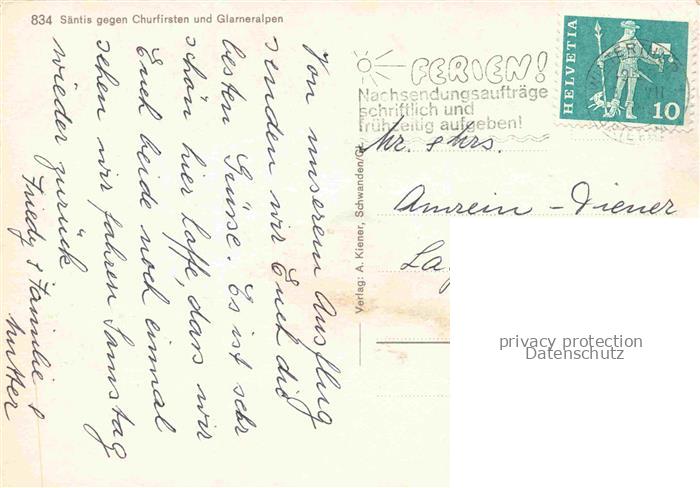 834 Säntis gegen Churfirsten und Glarneralpen
Von unserem Ausflug
senden wir Euch die
besten Grüsse. Es ist sehr
schön hier hoffe, dass wir
Euch beide noch einmal
sehen wir fahren Samstag
wieder zurück
Friedy & Familie &
Mutter
Verlag: A. Kiener, Schwanden/Gl.
FERIEN!
Nachsendungsaufträge
schriftlich und
frühzeitig aufgeben!
HELVETIA
10
VII
Mr. & Mrs.
Amrein-Diener
La
privacy protection
Datenschutz